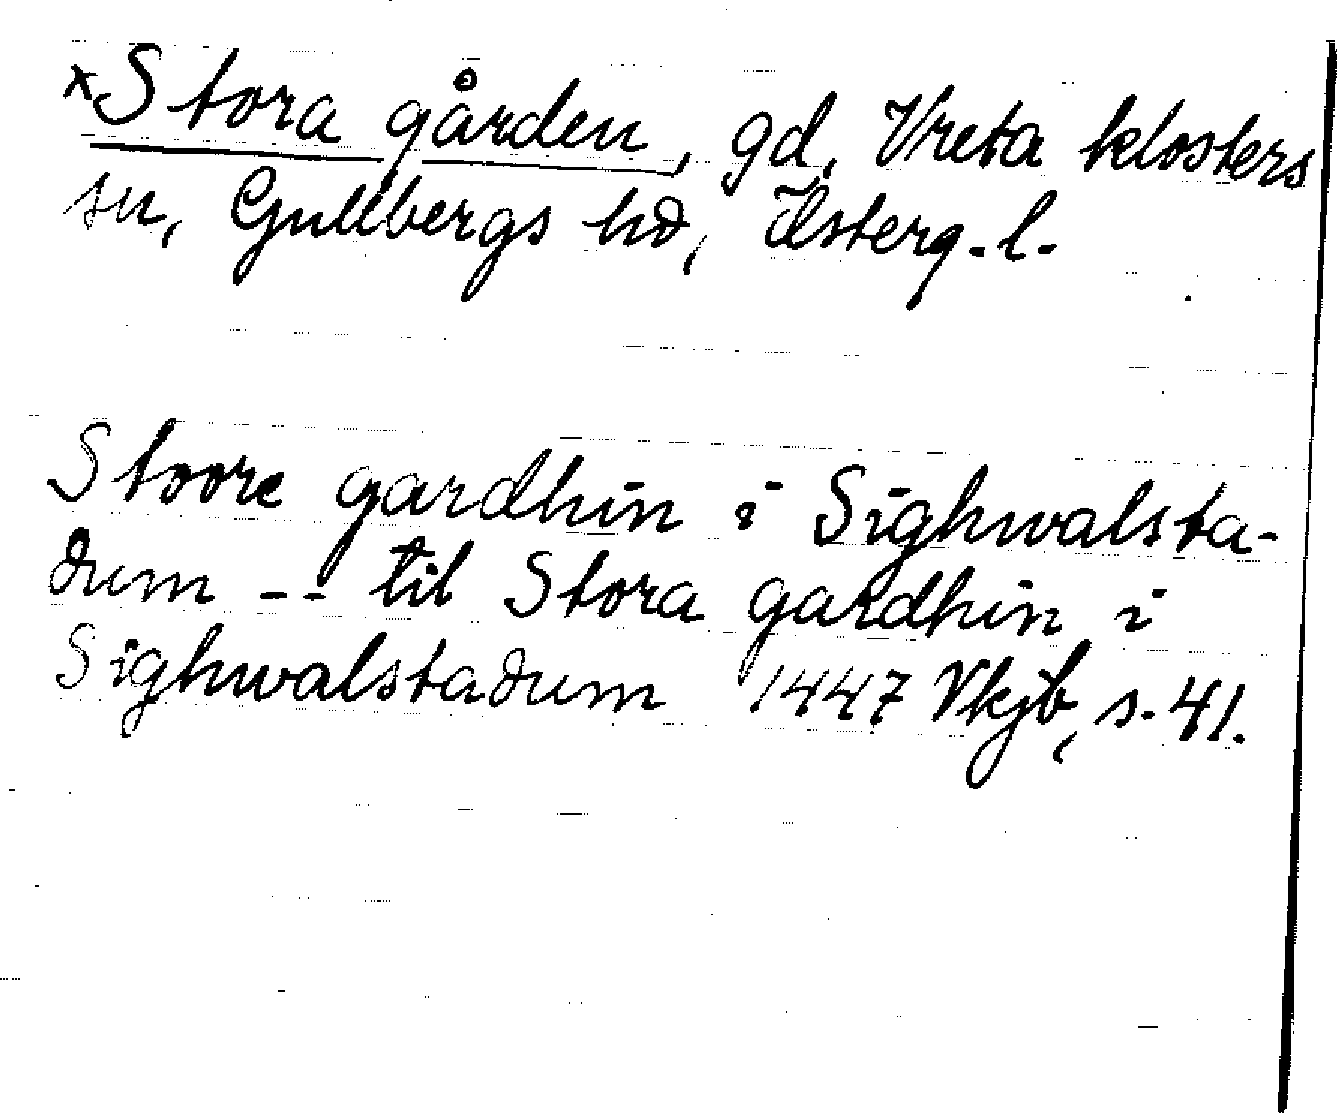 xStora gården, gd, Vreta klosters
sn, Gullbergs hd, Österg. l.
Stoore gardhin i Sighwalsta-
dum -- til Stora gardhin i
Sighwalstadum 1447 Vkjb, s. 41.